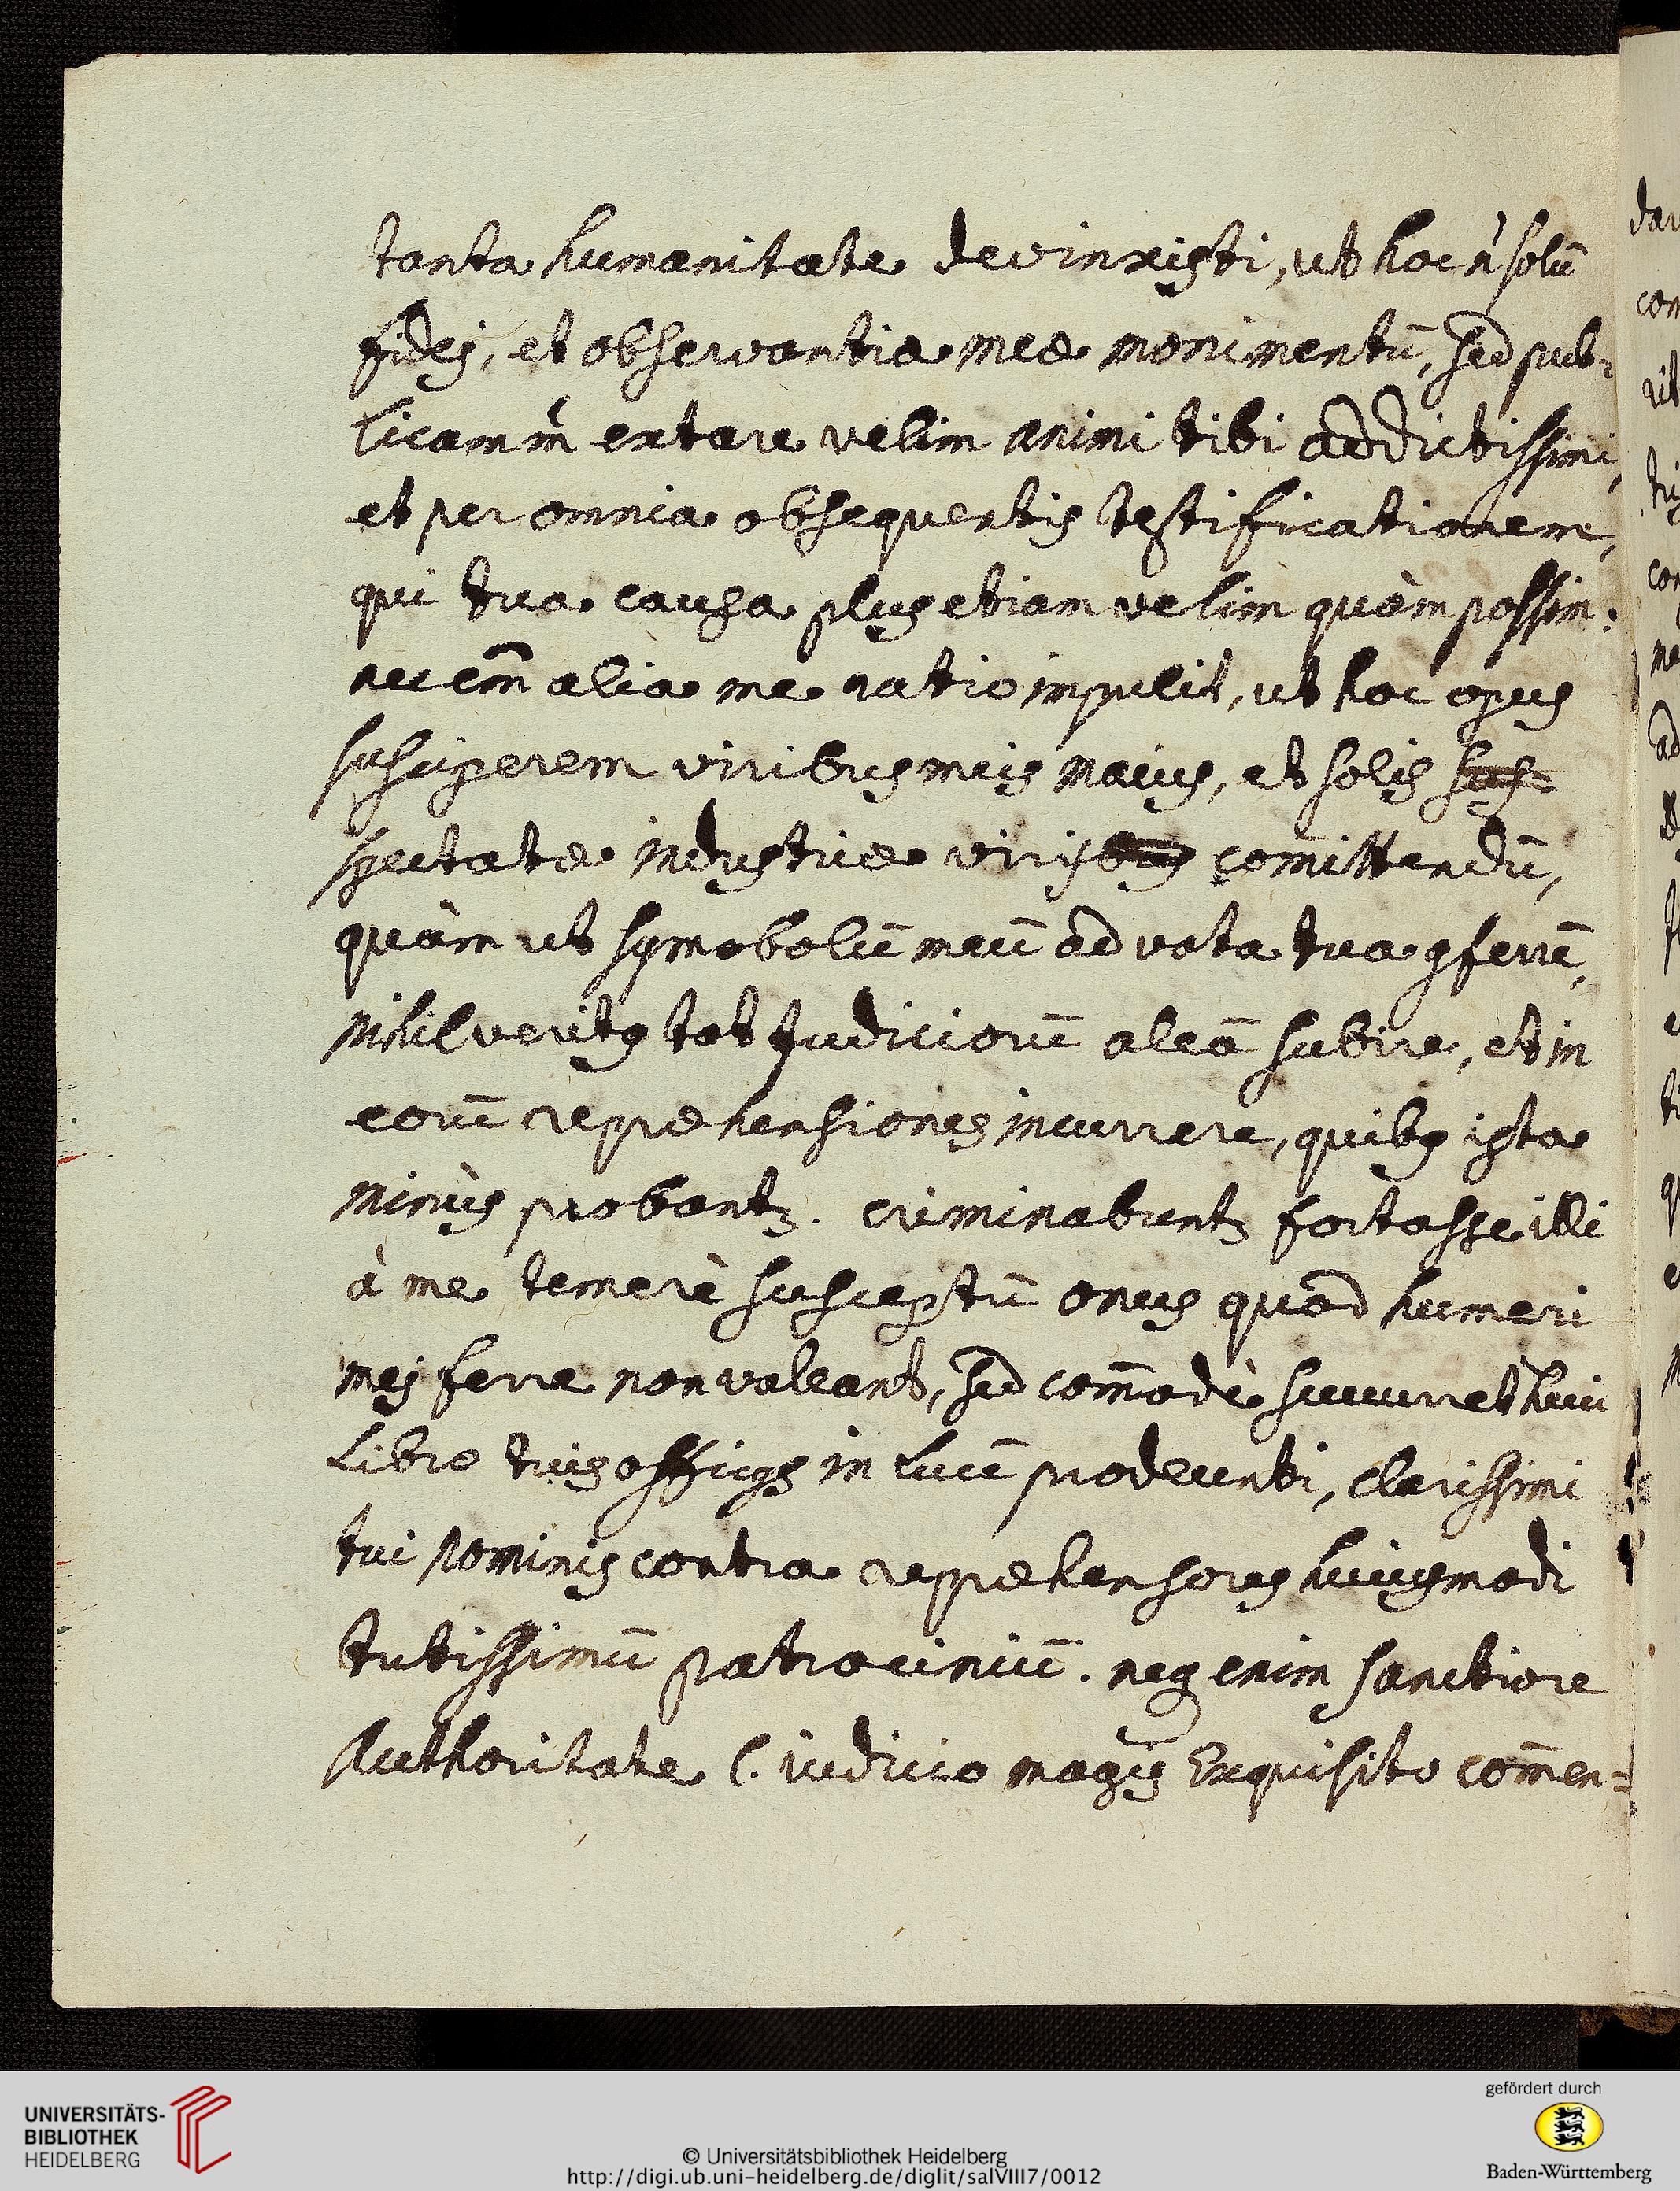 tanta humanitate devinxisti, ut hoc ñ solū
fidej, et observantiæ meæ monimentū, sed pub-
licam m̃ extare velim animi tibi addictissimi,
et per omnia obsequentis testificationem,
qui tua causa plus etiam velim quàm possim:
nec em̃ alia me ratio impulit, ut hoc opus
susciperem viribus meis maius, et solis sus-
spectatæ industriæ virisbus com̄ittendū,
quàm ut symobolū meū ad vota tua ꝯferrē,
nihil veritꝯ tot Judiciorū aleā subire, et in
eorū repræhensiones incurrere, quibꝯ ista
minùs probantꝫ. criminabuntꝫ fortasse illi
à me temerè susceptū onus quod humeri
mej ferre non valeant, sed com̄odè succurret huic
Libro tuis officijs in lucē prodeunti, clarissimi
tui nominis contra repræhensores huiusmodi
tutissimū patrociniū. neqꝫ enim sanctiore
Authoritate l. iudicio magis Exquisito com̄en=
dar
com
ad
UNIVERSITÄTS-
BIBLIOTHEK
HEIDELBERG
© Universitätsbibliothek Heidelberg
http://digi.ub.uni-heidelberg.de/diglit/salVIII7/0012
gefördert durch
Baden-Württemberg